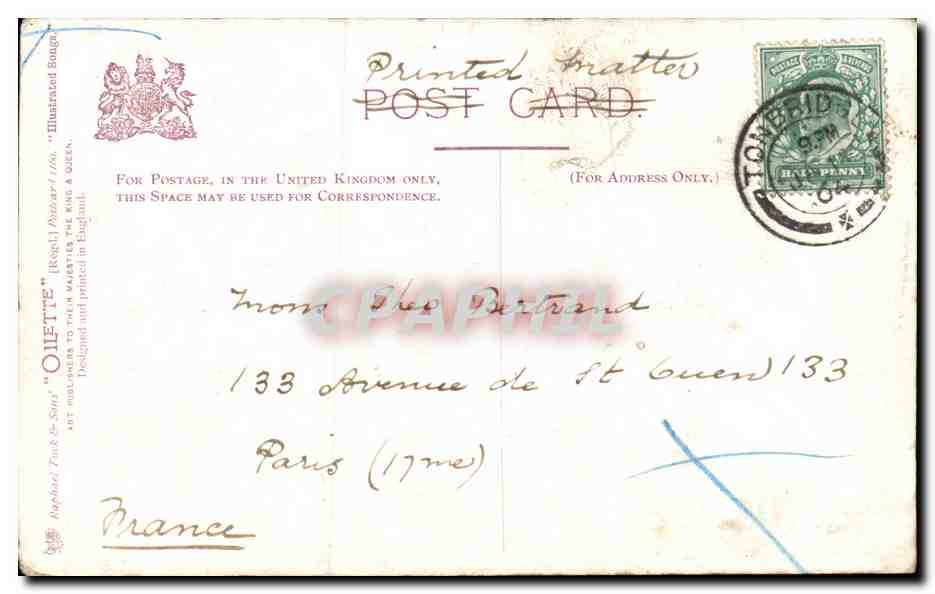 Printed matter
POST CARD.
FOR POSTAGE, IN THE UNITED KINGDOM ONLY,
THIS SPACE MAY BE USED FOR CORRESPONDENCE.
(FOR ADDRESS ONLY.)
POSTAGE & REVENUE
HALF PENNY
TONBRIDGE
9. PM
Mons Theo Bertrand
133 Avenue de St Ouen 133
Paris (17me)
France
CPAPHIL
Raphael Tuck & Sons' "OILETTE" [Regd.] Postcard 1160. "Illustrated Songs."
ART PUBLISHERS TO THEIR MAJESTIES THE KING & QUEEN.
Designed and printed in England.